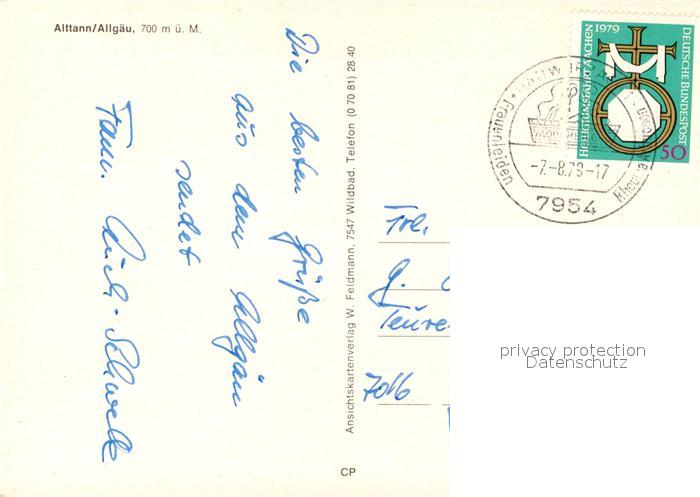 Alttann/Allgäu, 700 m ü. M.
Die besten Grüße
aus dem Allgäu
sendet
Fam.
Ansichtskartenverlag W. Feldmann, 7547 Wildbad. Telefon (0 70 81) 28 40
CP
1979
HEILIGTUMSFAHRT AACHEN
DEUTSCHE BUNDESPOST
50
Frauenleiden
-7.-8.79-17
7954
Frl.
G.
7066
privacy protection
Datenschutz